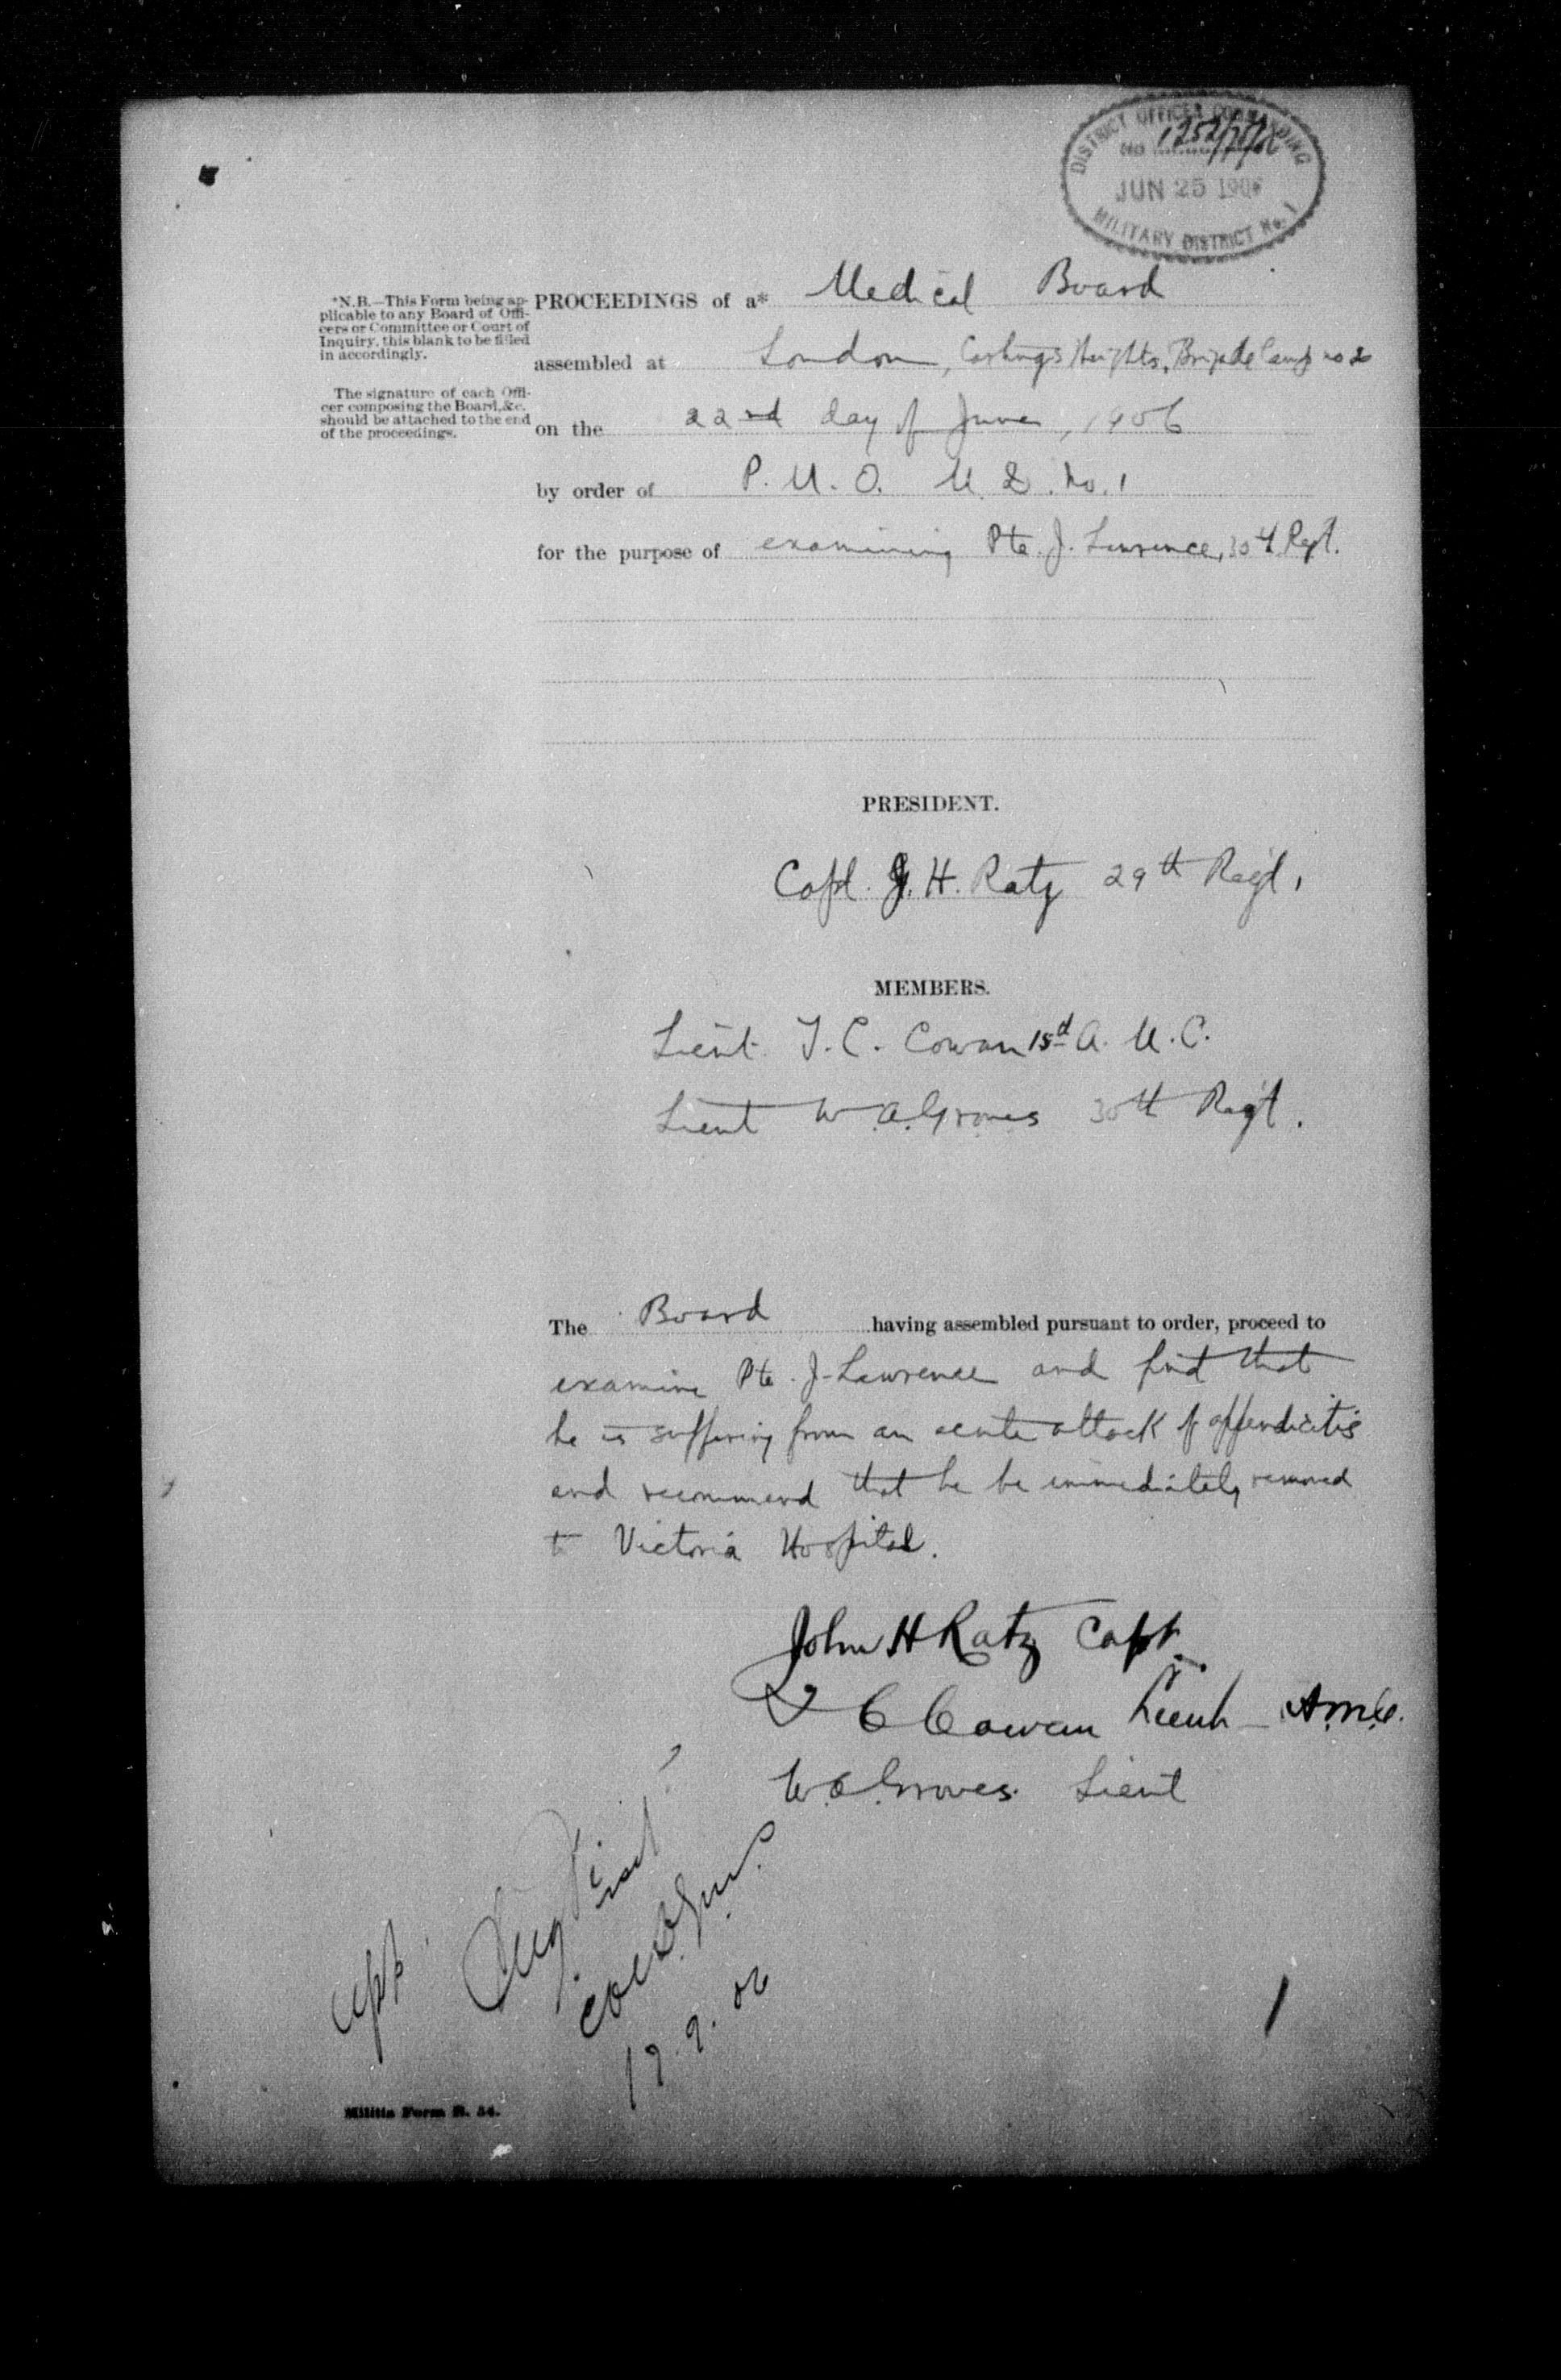 DISTRICT OFFICER COMMANDING
No
JUN 25 1906
MILITARY DISTRICT No. 1
*N.B.—This Form being ap-
plicable to any Board of Offi-
cers or Committee or Court of
Inquiry, this blank to be filled
in accordingly.
The signature of each Offi-
cer composing the Board, &c.
should be attached to the end
of the proceedings.
PROCEEDINGS of a* Medical Board
assembled at London, Carling's Heights, Brigade Camp no 2
on the 22nd day of June, 1906
by order of P. M. O. M. D. No. 1
for the purpose of examining Pte. J. Lawrence, 30th Regt.
PRESIDENT.
Capt. J. H. Ratz 29th Regt.
MEMBERS.
Lieut. J. C. Cowan A. M. C.
Lieut W. A. Groves 30th Regt.
The Board having assembled pursuant to order, proceed to
examine Pte. J. Lawrence and find that
he is suffering from an acute attack of appendicitis
and recommend that he be immediately removed
to Victoria Hospital.
John H Ratz Capt.
C Cowan Lieut - A.M.C.
W. A. Groves. Lieut
Col
06
Militia Form B. 54.
1